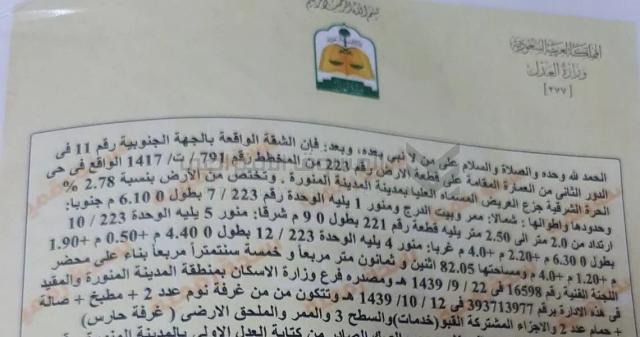 بسم الله الرحمن الرحيم
المملكة العربية السعودية
وزارة العدل
[٢٧٧]
الحمد لله وحده والصلاة والسلام على من لا نبي بعده، وبعد: فإن الشقة الواقعة بالجهة الجنوبية رقم 11 في
الدور الثاني من العمارة المقامة على قطعة الارض رقم 223 من المخطط رقم 791 / ت/ 1417 الواقع في حي
الحرة الشرقية جزع العريض المسماه العليا بمدينة المدينة المنورة . وتختص من الأرض بنسبة 2.78 %
وحدودها واطوالها : شمالا: ممر وبيت الدرج ومنور 1 يليه الوحدة رقم 223 / 7 بطول 0 6.10 م جنوبا:
ارتداد من 2.0 متر الى 2.50 متر يليه قطعة رقم 221 بطول 0 9 م شرقا: منور 5 يليه الوحدة 223 / 10
بطول 0 6.30 م +2.20 م +4.0 م غربا: منور 4 يليه الوحدة 223 / 12 بطول 0 4.40 م +0.50 م +1.90
م +1.20 م +4.0 م ومساحتها 82.05 اثنين و ثمانون متر مربعا و خمسة سنتمترأ مربعأ بناء على محضر
اللجنة الفنية رقم 16598 في 22 / 9 / 1439 هـ ومصدره فرع وزارة الاسكان بمنطقة المدينة المنورة والمقيد
في هذه الادارة برقم 393713977 في 12 / 10 / 1439 هـ وتتكون من من غرفة نوم عدد 2 + مطبخ + صالة
+ حمام عدد 2 والاجزاء المشتركة القبو(خدمات)والسطح 3 والممر والملحق الارضي ( غرفة حارس)
الصك الصادر من كتابة العدل الاولى بالمدينة المنورة